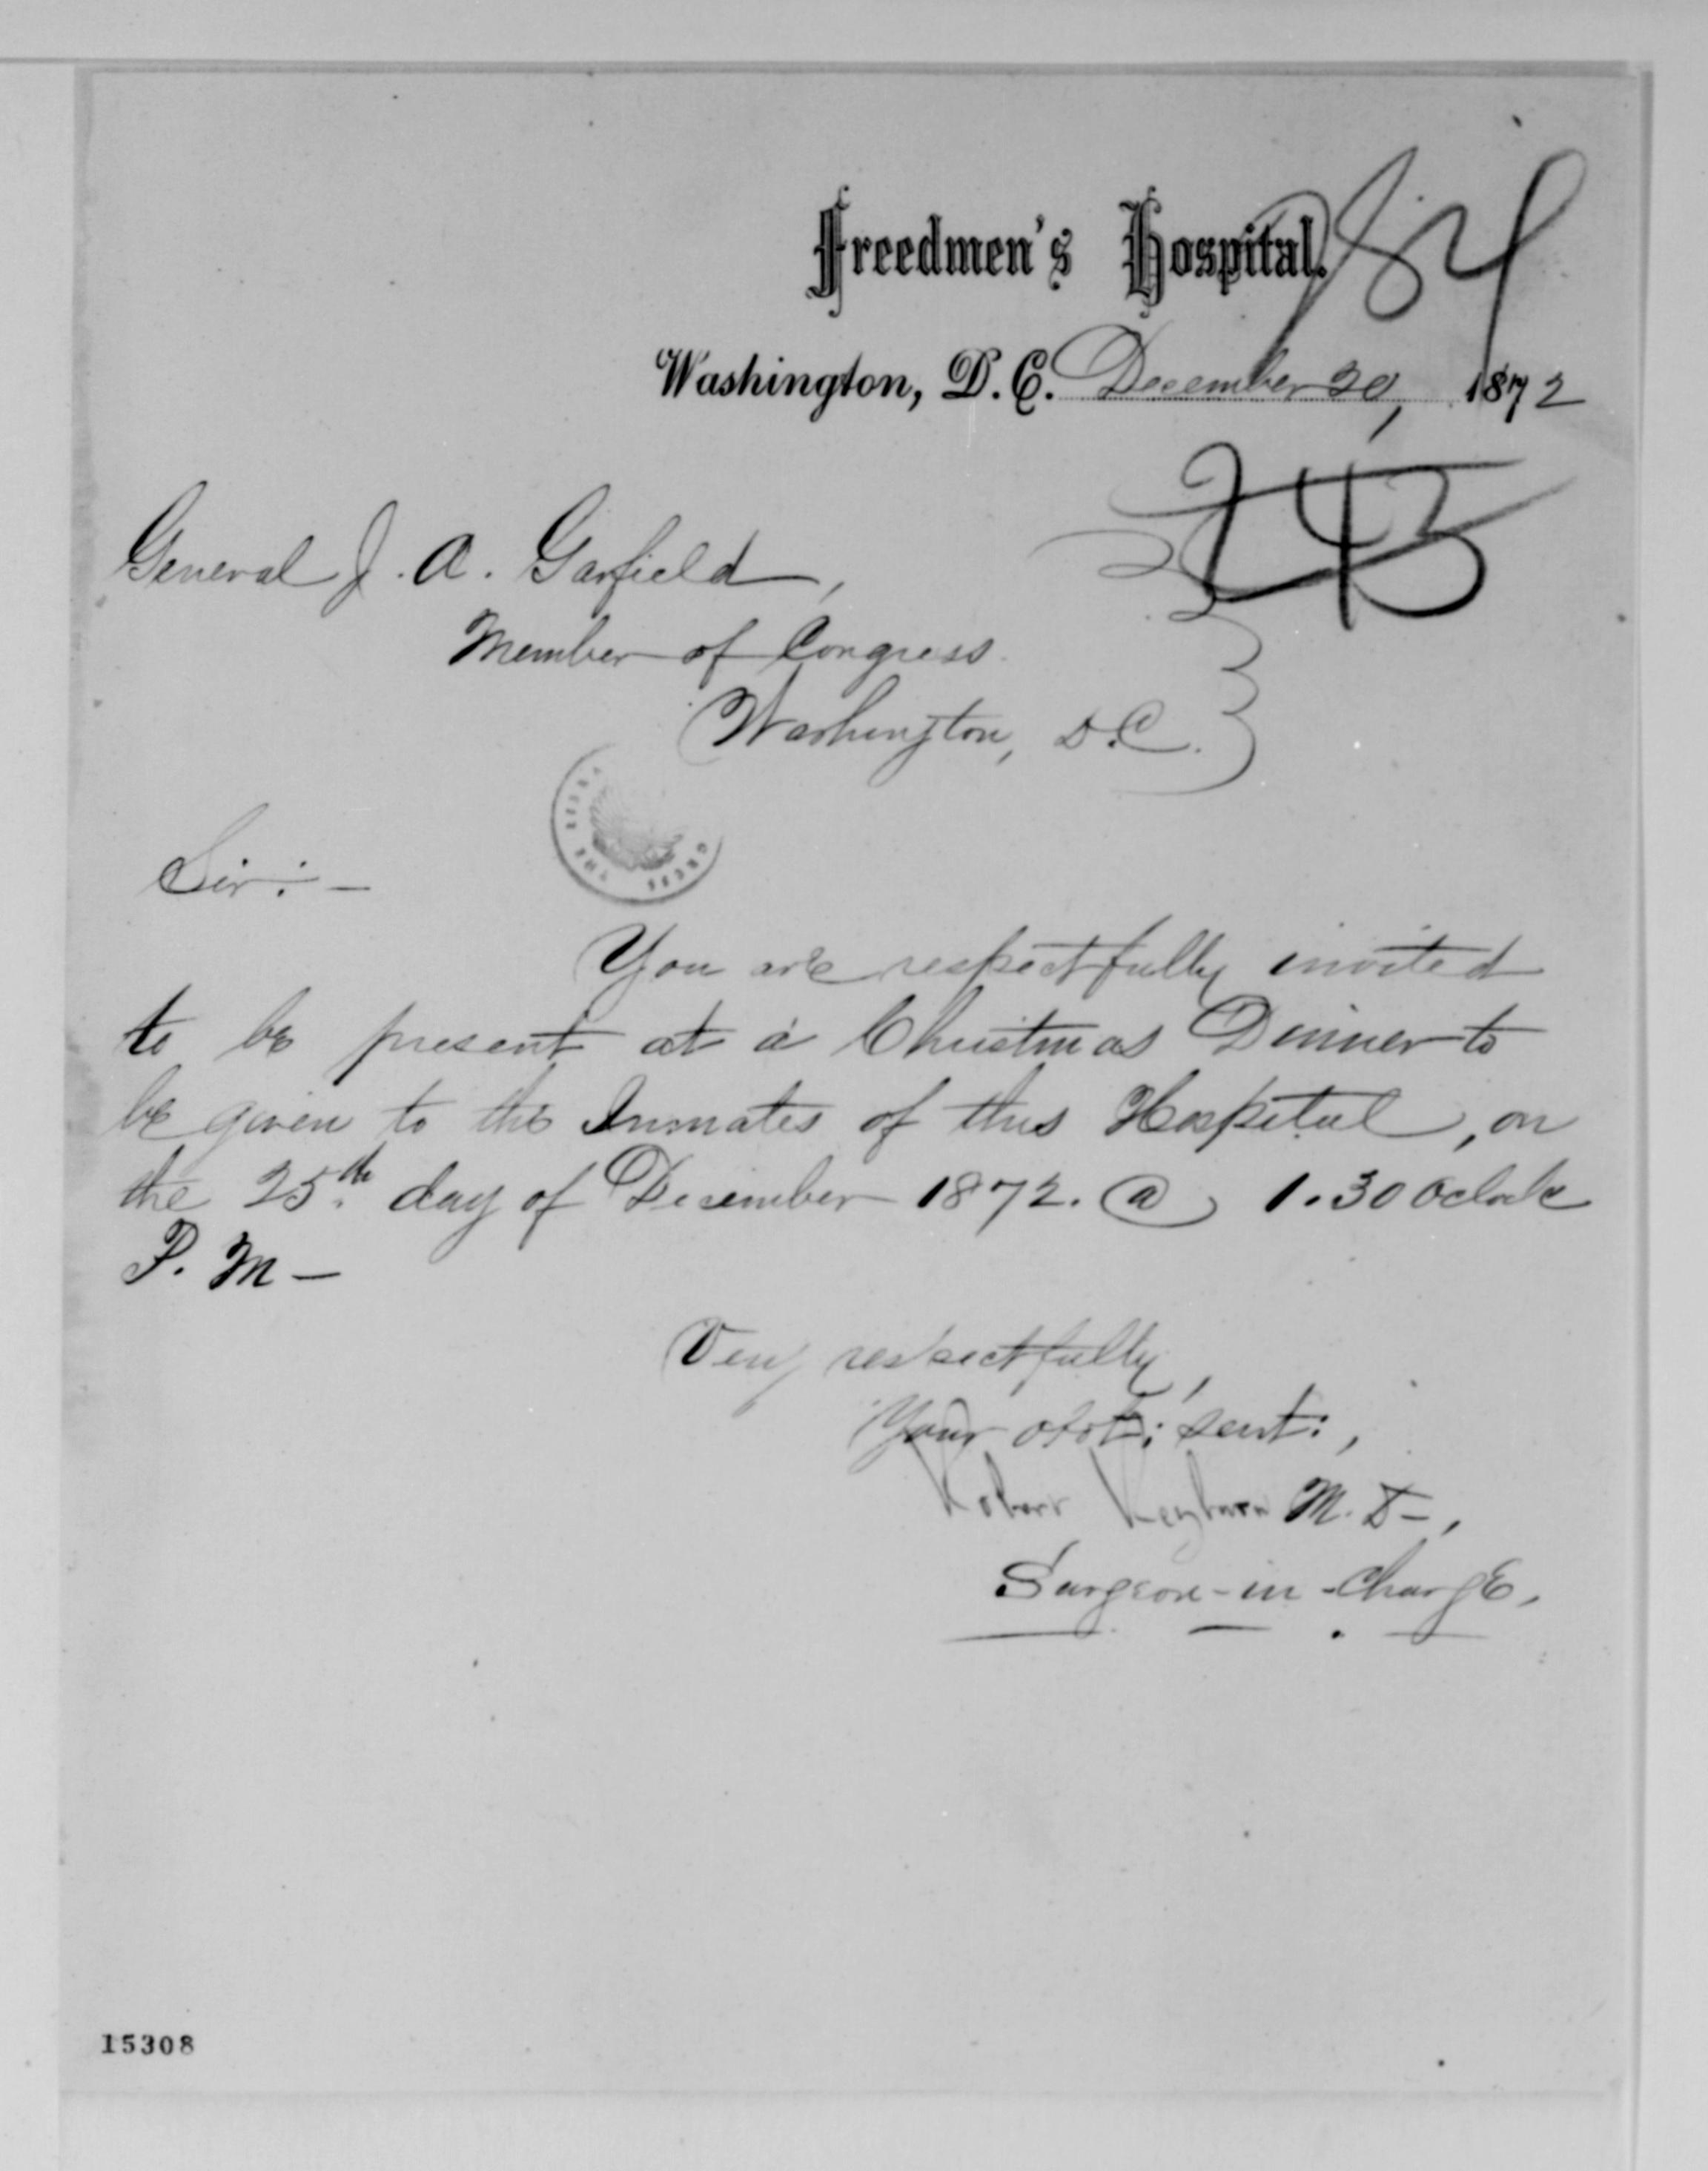 Freedmen's Hospital.
184
Washington, D.C. December 20, 1872
243
General J. A. Garfield,
Member of Congress.
Washington, D.C.
Sir:—
You are respectfully invited
to be present at a Christmas Dinner to
be given to the Inmates of this Hospital, on
the 25th. day of December 1872. @ 1.30 Oclock
P. M—
Very respectfully,
Your obdt: servt:,
Robert Reyburn M. D—,
Surgeon-in-Charge.
15308